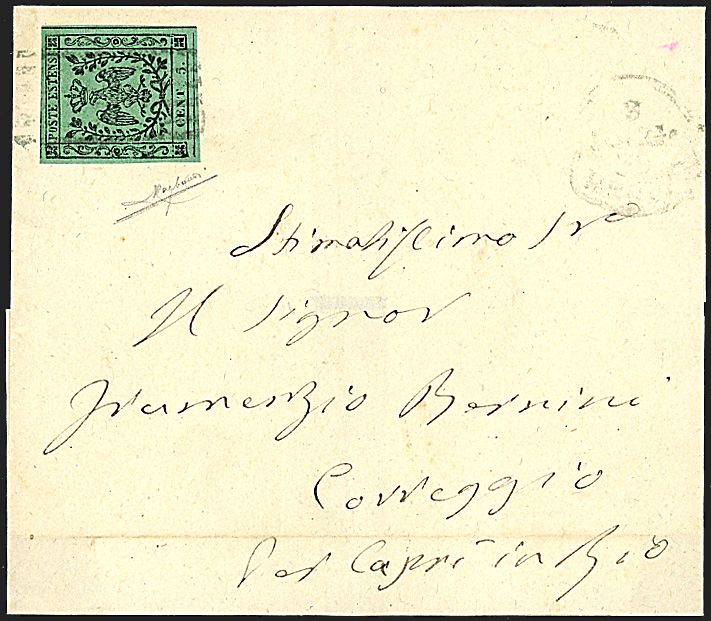 POSTE ESTENSI
CENT. 5.
Stimatissimo Sre
Il Signor
Framenzio Bernini
Correggio
Per Capri in Rio